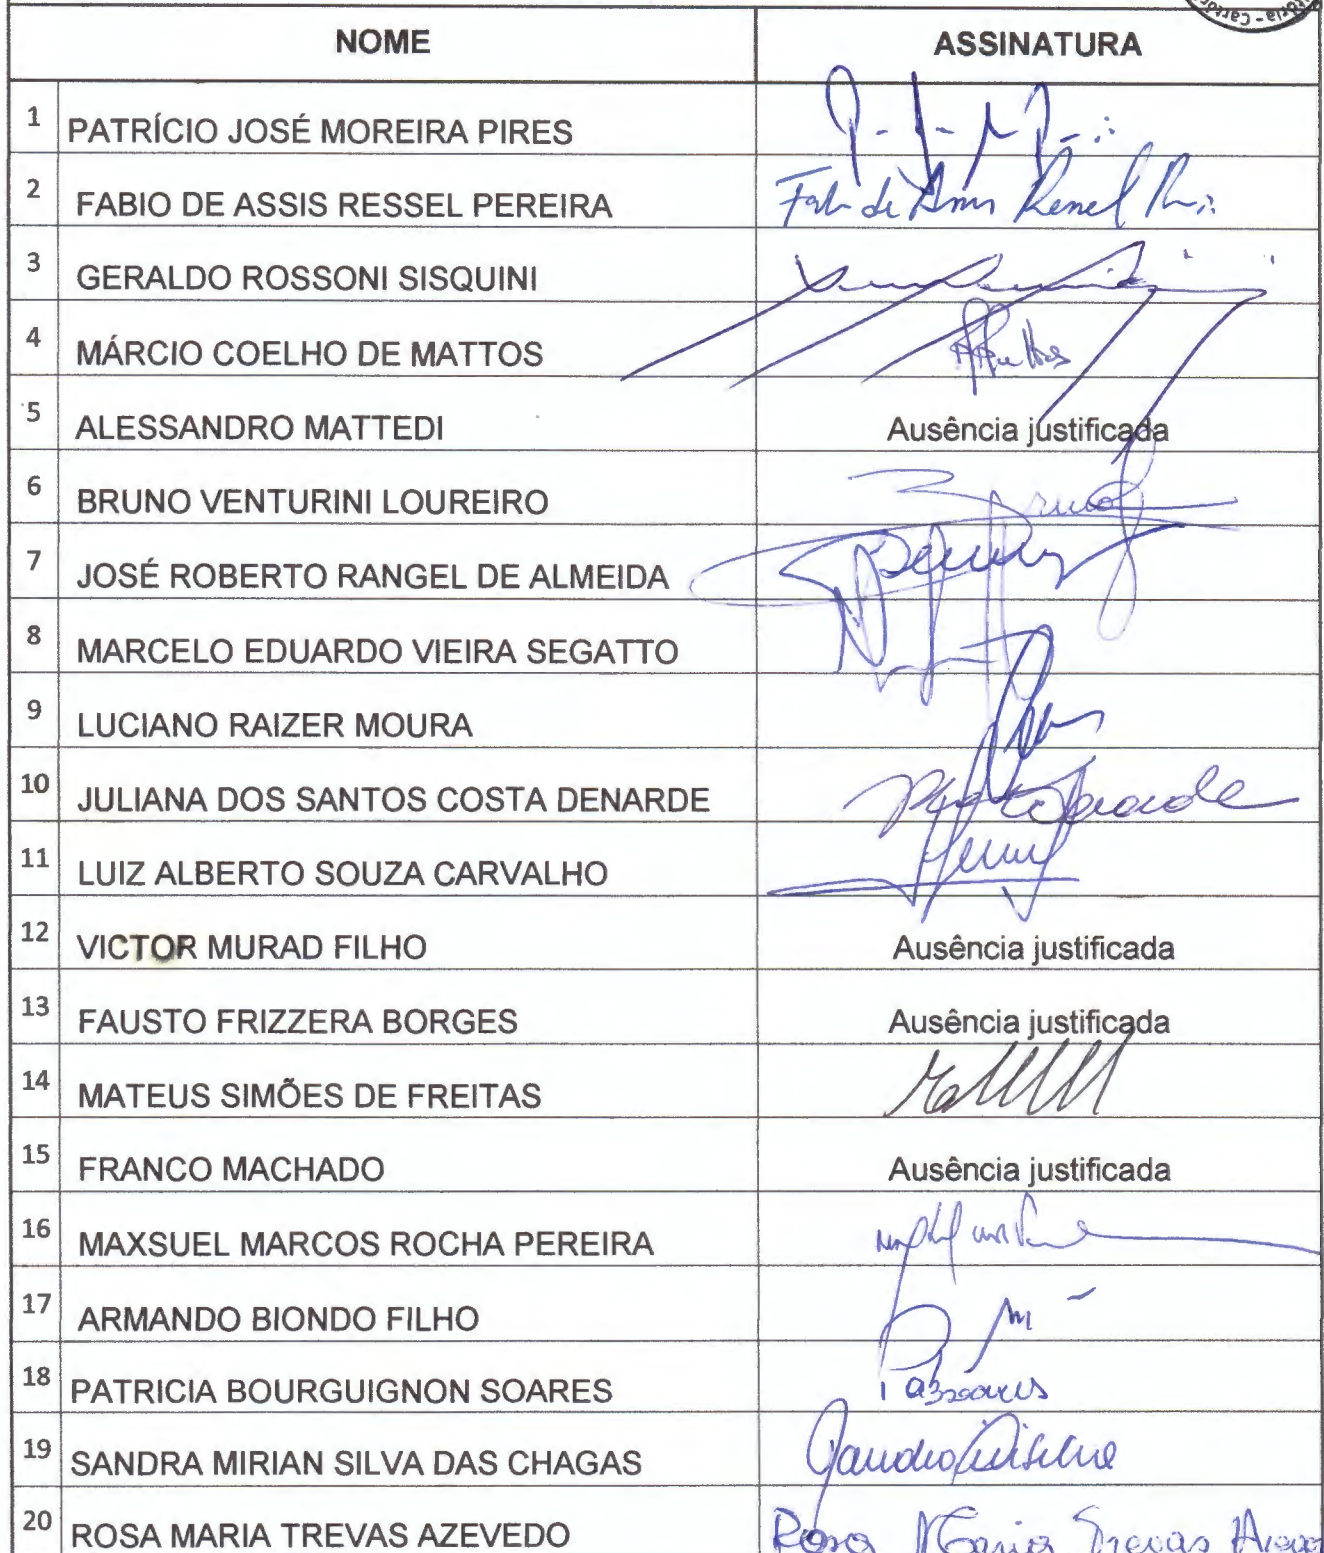 NOME ASSINATURA
1 PATRÍCIO JOSÉ MOREIRA PIRES
2 FABIO DE ASSIS RESSEL PEREIRA
3 GERALDO ROSSONI SISQUINI
4 MÁRCIO COELHO DE MATTOS
5 ALESSANDRO MATTEDI Ausência justificada
6 BRUNO VENTURINI LOUREIRO
7 JOSÉ ROBERTO RANGEL DE ALMEIDA
8 MARCELO EDUARDO VIEIRA SEGATTO
9 LUCIANO RAIZER MOURA
10 JULIANA DOS SANTOS COSTA DENARDE
11 LUIZ ALBERTO SOUZA CARVALHO
12 VICTOR MURAD FILHO Ausência justificada
13 FAUSTO FRIZZERA BORGES Ausência justificada
14 MATEUS SIMÕES DE FREITAS
15 FRANCO MACHADO Ausência justificada
16 MAXSUEL MARCOS ROCHA PEREIRA
17 ARMANDO BIONDO FILHO
18 PATRICIA BOURGUIGNON SOARES
19 SANDRA MIRIAN SILVA DAS CHAGAS
20 ROSA MARIA TREVAS AZEVEDO Rosa Maria Trevas